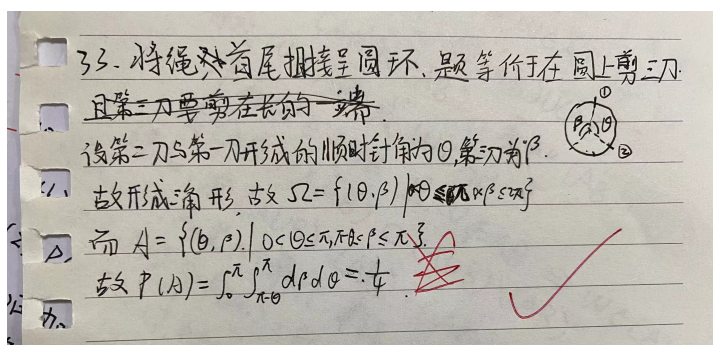 33. 将绳首尾相接呈圆环, 题等价于在圆上剪三刀.
且第三刀要剪在长的一端.
设第二刀与第一刀形成的顺时针角为θ,第三刀为β.
故形成三角形, 故 Ω={(θ,β)|0<θ≤ π,0<β≤2π}
而 A={(θ,β).|0<θ≤π,π-θ≤β≤π}.
故 P(A)=∫₀^π∫_{π-θ}^π dβdθ=1/4.
① β θ ②